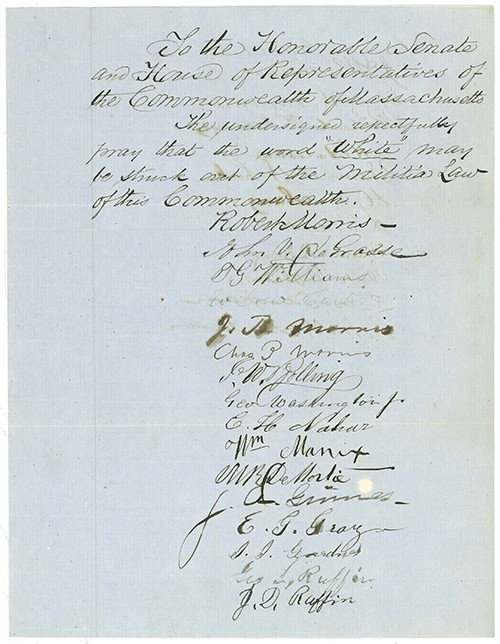 To the Honorable Senate
and House of Representatives of
the Commonwealth of Massachusetts
The undersigned respectfully
pray that the word "White" may
be struck out of the Militia Law
of this Commonwealth.
Robert Morris
John V. DeGrasse
T G Williams
J. B. Morris
Chas P Morris
J. W. Bolling
Geo Washington jr
C. H. Nahar
Wm Mannix
J. A. Grimes
E. G. Gray
J. J. Gardner
Geo L. Ruffin
J. D. Ruffin